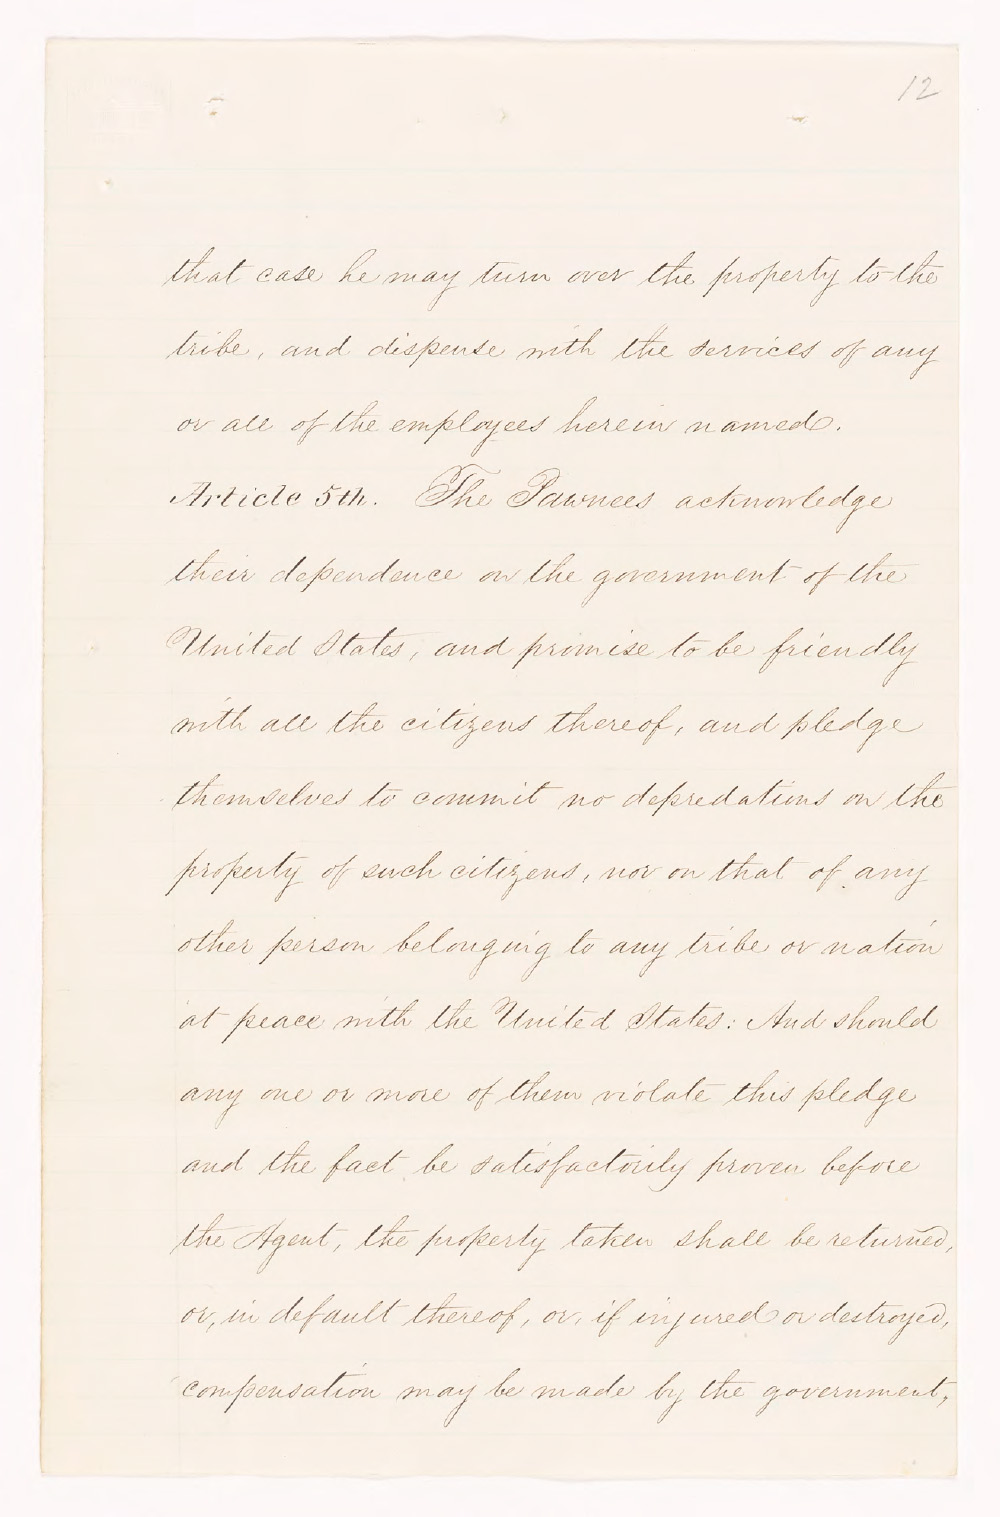 12
that case he may turn over the property to the
tribe, and dispense with the services of any
or all of the employees herein named.
Article 5th. The Pawnees acknowledge
their dependence on the government of the
United States, and promise to be friendly
with all the citizens thereof, and pledge
themselves to commit no depredations on the
property of such citizens, nor on that of any
other person belonging to any tribe or nation
at peace with the United States: And should
any one or more of them violate this pledge
and the fact be satisfactorily proven before
the Agent, the property taken shall be returned,
or, in default thereof, or, if injured or destroyed,
compensation may be made by the government,